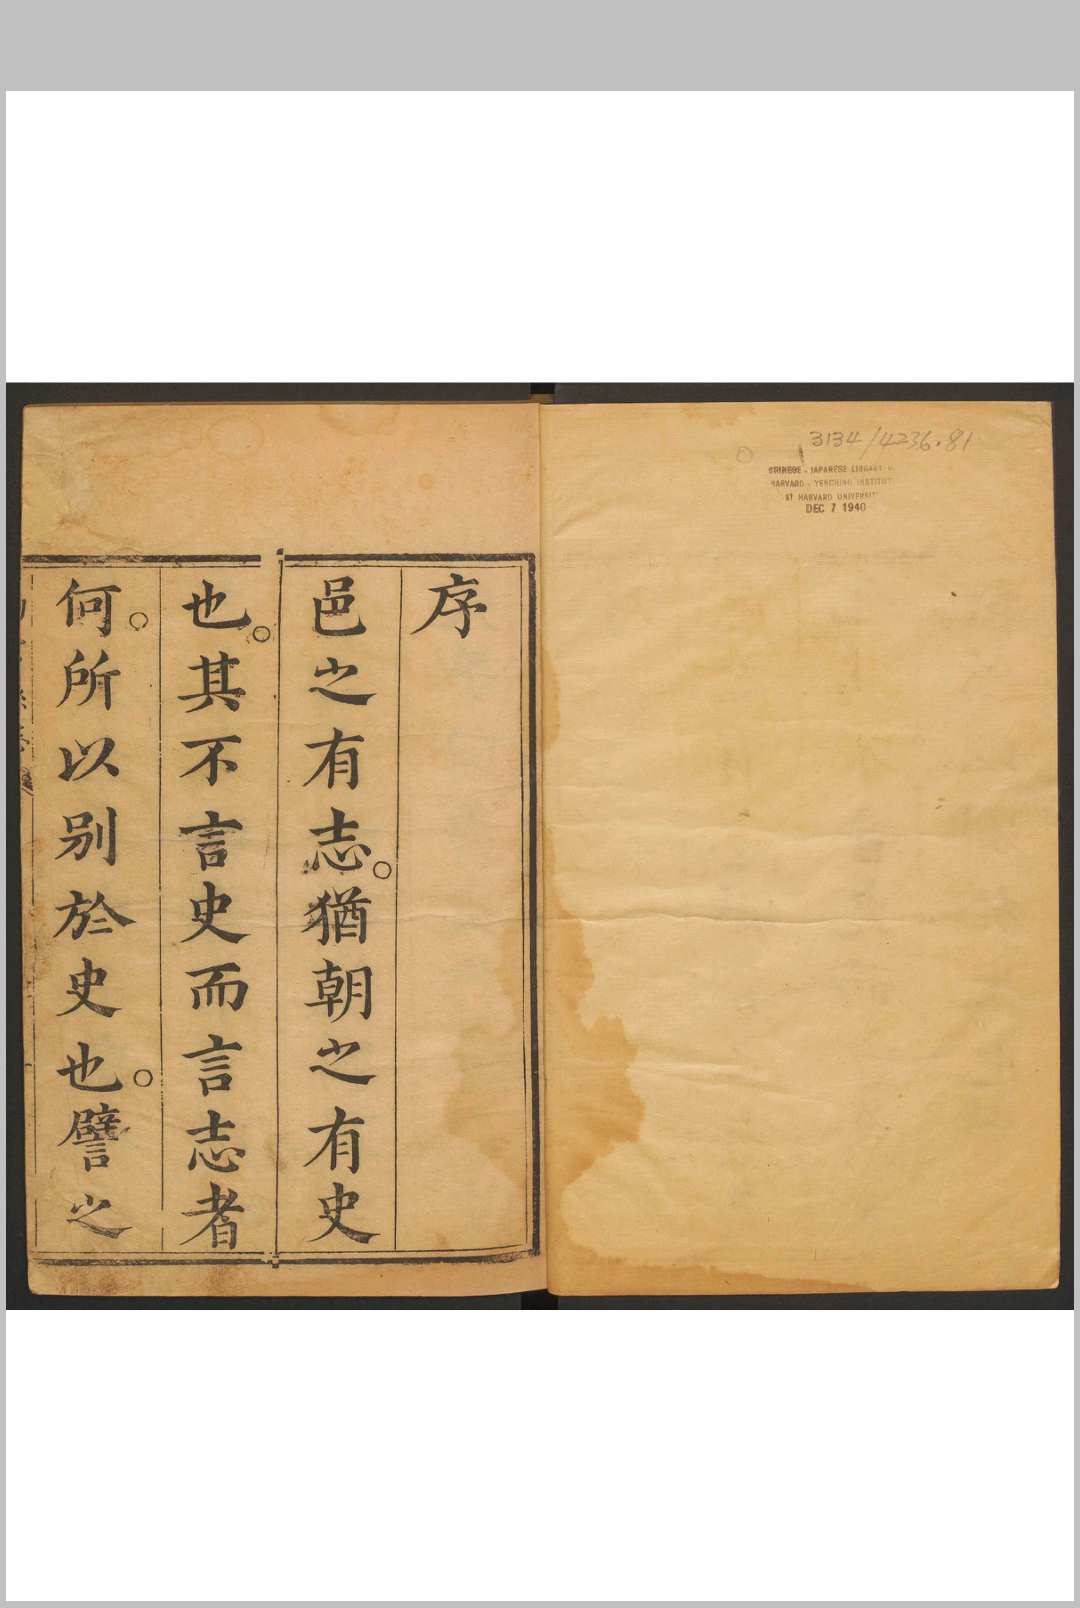 3134/4236.81
CHINESE - JAPANESE LIBRARY
HARVARD - YENCHING INSTITUT
AT HARVARD UNIVERSIT
DEC 7 1940
序
邑之有志。猶朝之有史
也。其不言史而言志者
何。所以别於史也。譬之